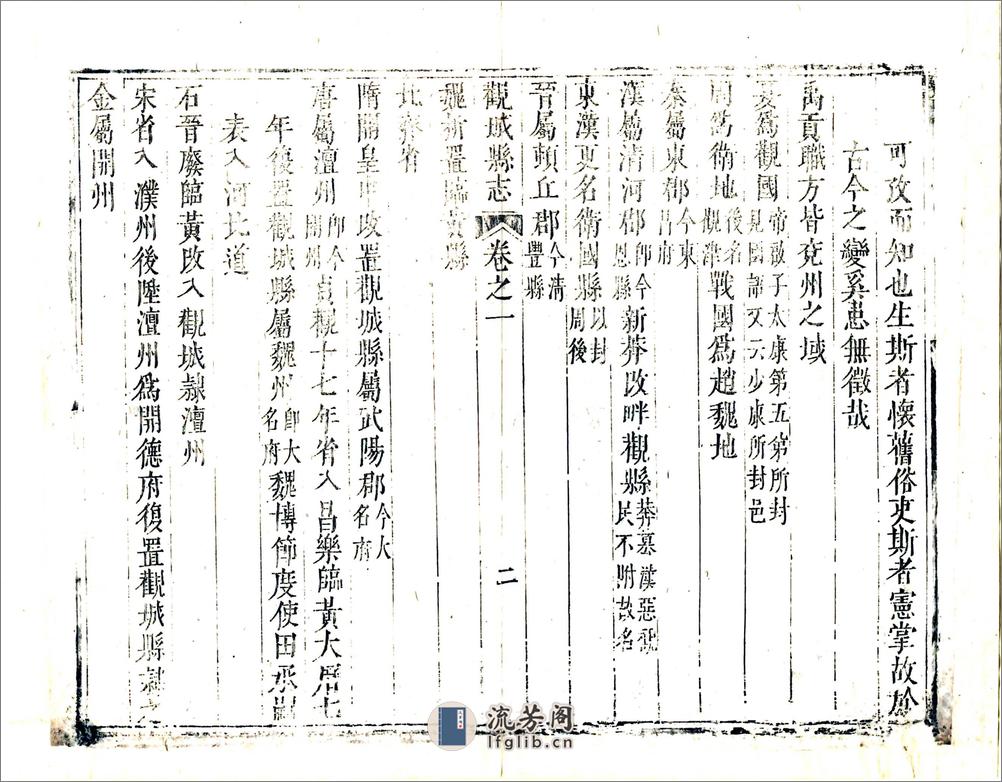 可攷而知也生斯者懷舊俗吏斯者憲掌故於
古今之變奚患無徵哉
禹貢職方皆兗州之域
夏爲觀國帝啟子太康第五第所封見國語又云少康所封邑
周爲衛地後名觀津戰國爲趙魏地
秦屬東郡今東昌府
漢屬清河郡即今恩縣新莽改畔觀縣莽慕漢惡民不附故名
東漢更名衛國縣以封周後
晉屬頓丘郡今清豐縣
觀城縣志 卷之一 二
魏析置臨黃縣
北齊省
隋開皇中改置觀城縣屬武陽郡今大名府
唐屬澶州即今開州貞觀十七年省入昌樂臨黃大曆七
年復置觀城縣屬魏州即大名府魏博節度使田承嗣
表入河北道
石晉廢臨黃改入觀城隸澶州
宋省入濮州後陞澶州爲開德府復置觀城縣隸之
金屬開州
流芳阁
lfglib.cn